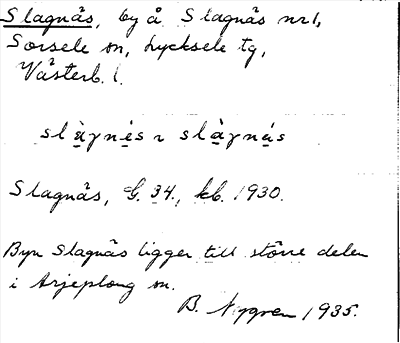 Slagnäs, by å Slagnäs nr 1,
Sorsele sn, Lycksele tg,
Västerb. l.
slàgnés ~ slàgnás
Slagnäs, G. 34., kb. 1930.
Byn Slagnäs ligger till större delen
i Arjeplong sn.
B. Nygren 1935.